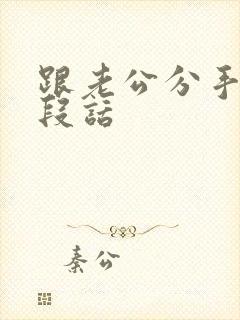 跟老公分手
段话
秦公